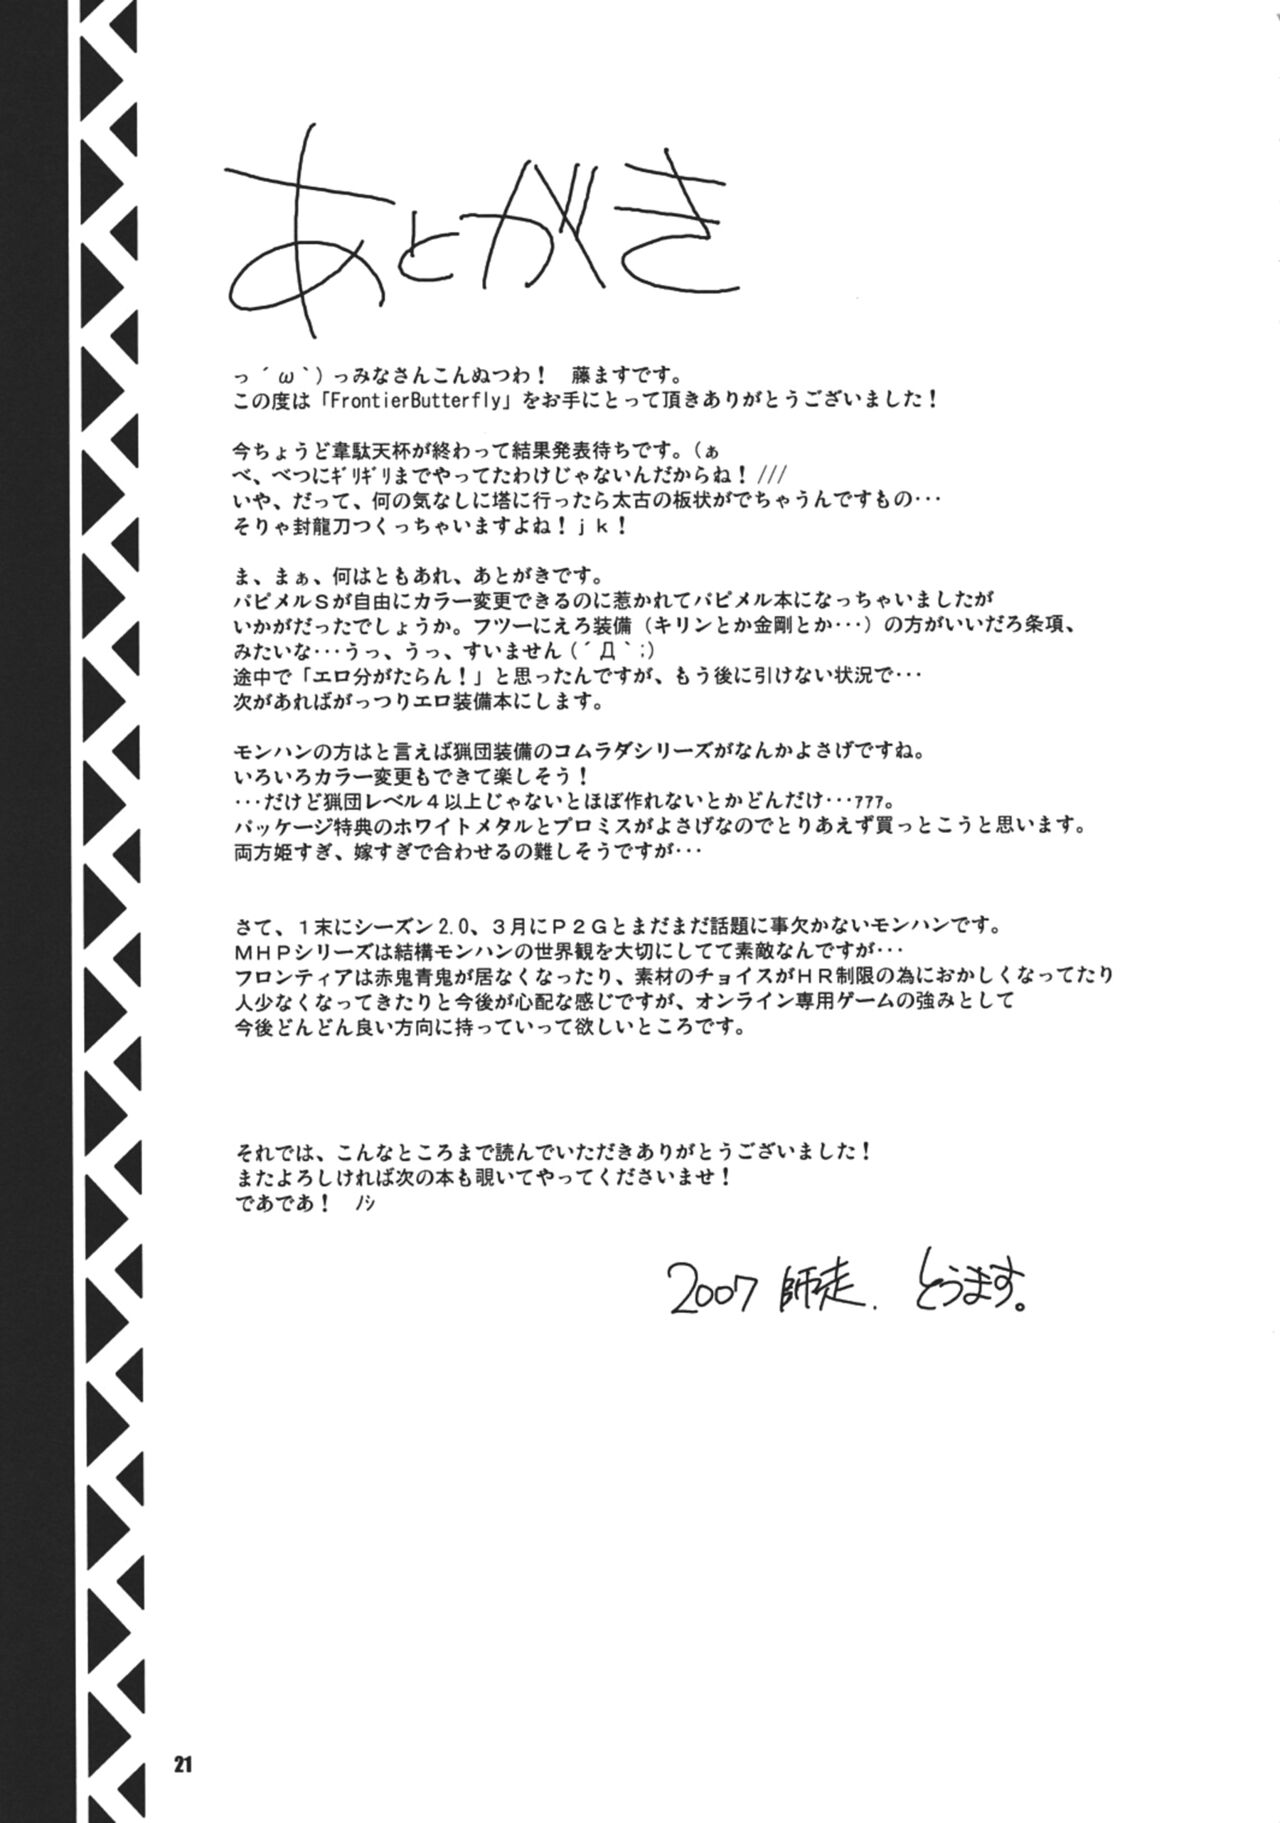 あとがき
っ´ω`)っみなさんこんぬつわ！　藤ますです。
この度は「FrontierButterfly」をお手にとって頂きありがとうございました！
今ちょうど韋駄天杯が終わって結果発表待ちです。(ぁ
べ、べつにｷﾞﾘｷﾞﾘまでやってたわけじゃないんだからね！///
いや、だって、何の気なしに塔に行ったら太古の板状がでちゃうんですもの･･･
そりゃ封龍刀つくっちゃいますよね！ｊｋ！
ま、まぁ、何はともあれ、あとがきです。
パピメルＳが自由にカラー変更できるのに惹かれてパピメル本になっちゃいましたが
いかがだったでしょうか。フツーにえろ装備（キリンとか金剛とか･･･）の方がいいだろ条項、
みたいな･･･うっ、うっ、すいません(´Д`;)
途中で「エロ分がたらん！」と思ったんですが、もう後に引けない状況で･･･
次があればがっつりエロ装備本にします。
モンハンの方はと言えば猟団装備のコムラダシリーズがなんかよさげですね。
いろいろカラー変更もできて楽しそう！
･･･だけど猟団レベル４以上じゃないとほぼ作れないとかどんだけ･･･ｧｧｧ。
パッケージ特典のホワイトメタルとプロミスがよさげなのでとりあえず買っとこうと思います。
両方姫すぎ、嫁すぎで合わせるの難しそうですが･･･
さて、１末にシーズン2.0、３月にＰ２Ｇとまだまだ話題に事欠かないモンハンです。
ＭＨＰシリーズは結構モンハンの世界観を大切にしてて素敵なんですが･･･
フロンティアは赤鬼青鬼が居なくなったり、素材のチョイスがＨＲ制限の為におかしくなってたり
人少なくなってきたりと今後が心配な感じですが、オンライン専用ゲームの強みとして
今後どんどん良い方向に持っていって欲しいところです。
それでは、こんなところまで読んでいただきありがとうございました！
またよろしければ次の本も覗いてやってくださいませ！
であであ！　ﾉｼ
2007 師走. とうます。
21